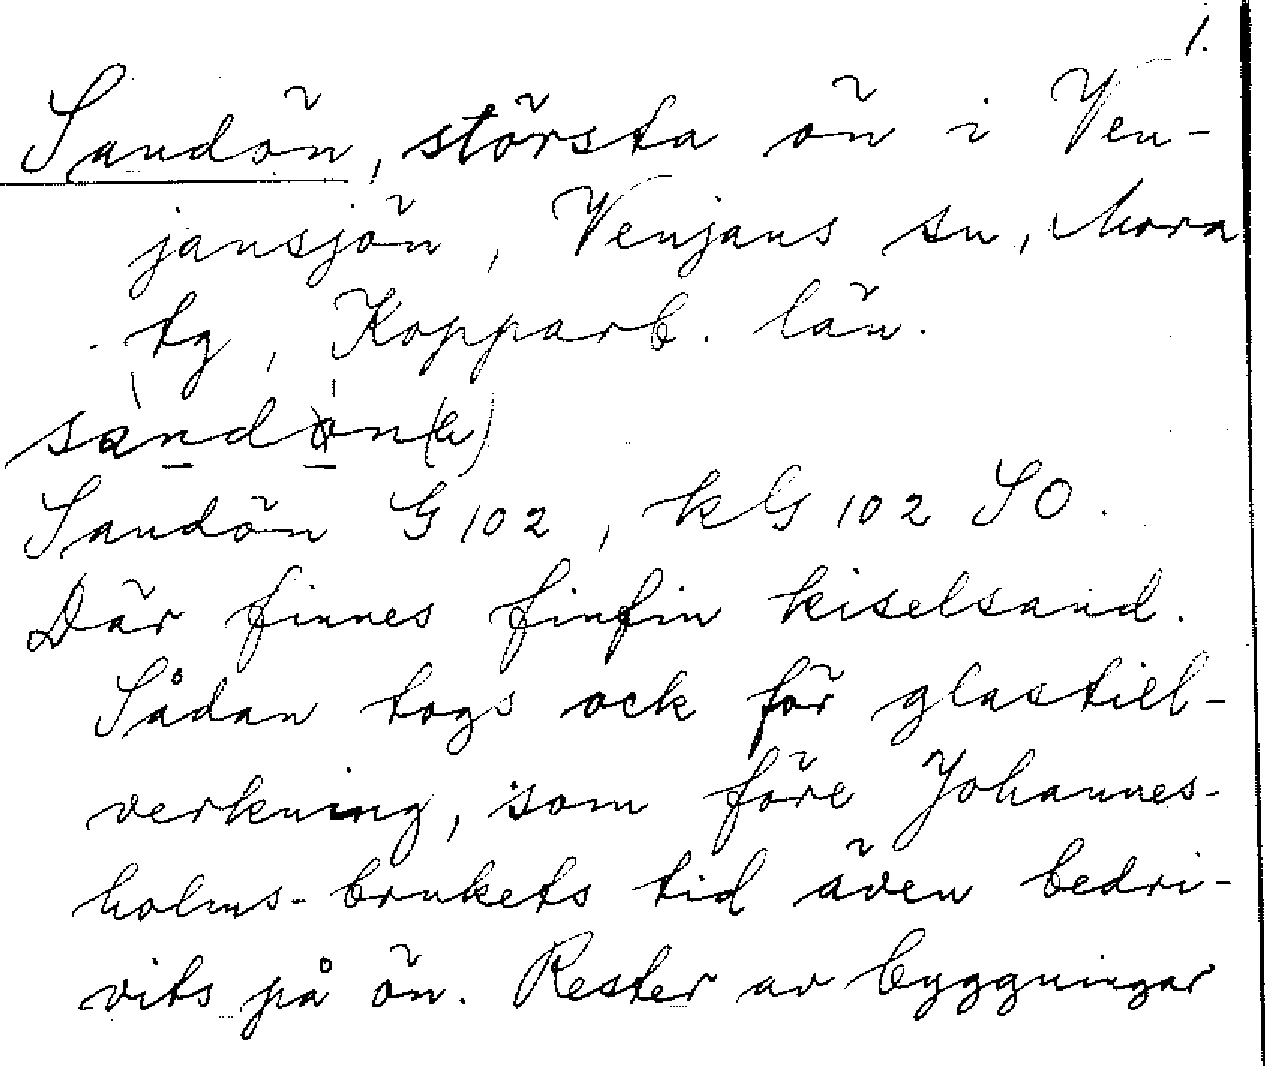 1.
Sandön, största ön i Ven-
jansjön, Venjans sn, Mora
tg, Kopparb. län.
Sandön G 102, kG 102 SO.
Där finnes finfin kiselsand.
Sådan togs ock för glastill-
verkning, som före Johannes-
holms-brukets tid även bedri-
vits på ön. Rester av byggningar